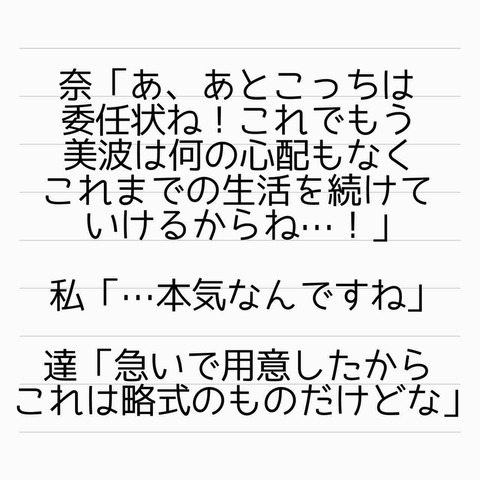 奈「あ、あとこっちは
委任状ね！これでもう
美波は何の心配もなく
これまでの生活を続けて
いけるからね…！」
私「…本気なんですね」
達「急いで用意したから
これは略式のものだけどな」